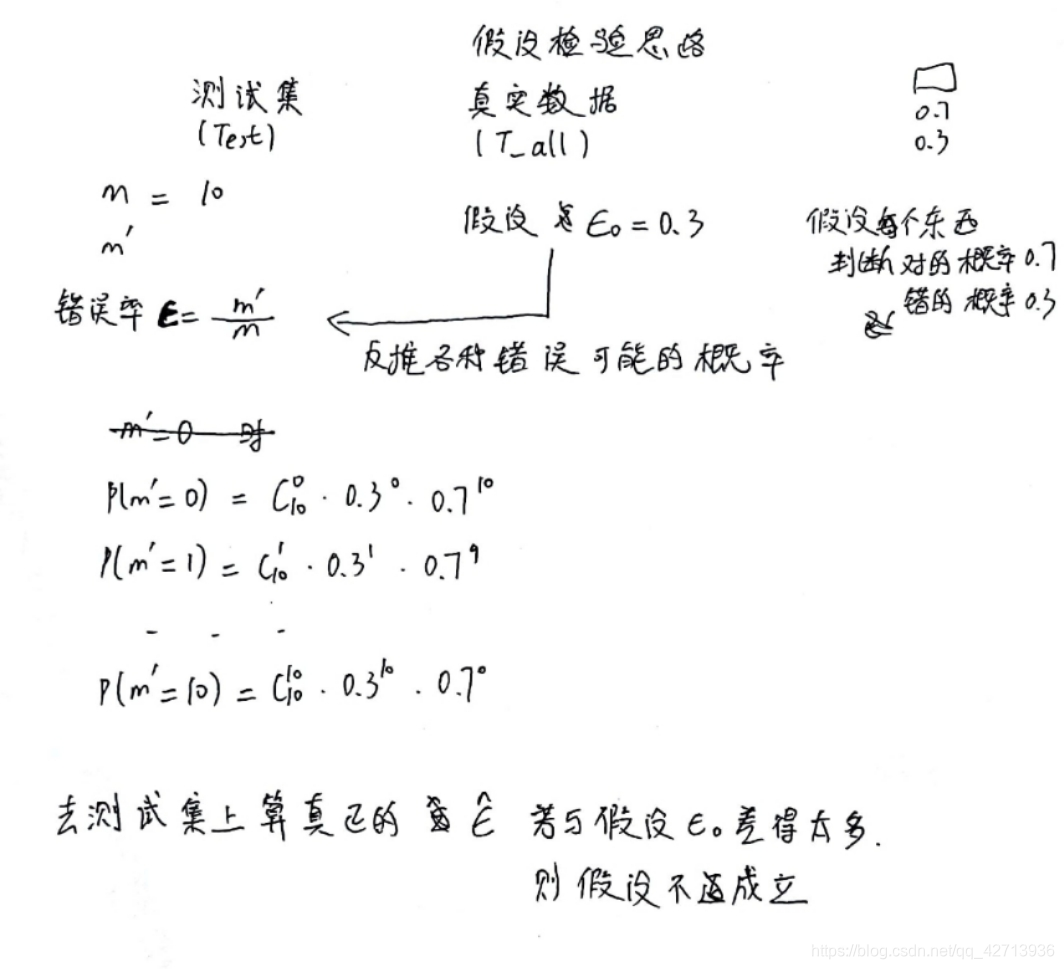 假设检验思路
测试集
(Test)
真实数据
(T_all)
0.7
0.3
m = 10
m'
假设 ε₀ = 0.3
假设每个东西
判断对的概率0.7
错的概率0.3
错误率 ε = m'/m
反推各种错误可能的概率
m'=0 时
P(m'=0) = C₁₀⁰ · 0.3⁰ · 0.7¹⁰
P(m'=1) = C₁₀¹ · 0.3¹ · 0.7⁹
- - -
P(m'=10) = C₁₀¹⁰ · 0.3¹⁰ · 0.7⁰
去测试集上算真正的 ε̂ 若与假设 ε₀ 差得太多.
则假设不成立
https://blog.csdn.net/qq_42713936